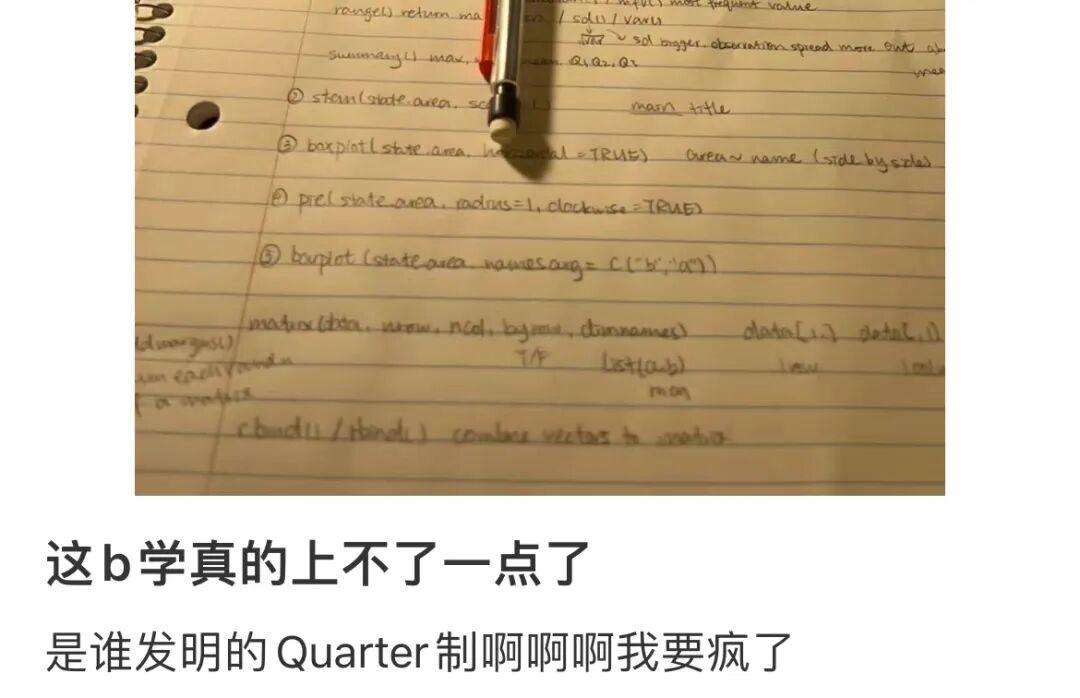 most frequent value
range() return ma / sd() / var()
√var ~ sd bigger. observation spread more out
summary() max, Q1, Q2, Q3
② stem(state.area, main title
③ boxplot(state.area, horizontal = TRUE) area ~ name (side by side)
④ pie(state.area, radius=1, clockwise=TRUE)
⑤ barplot (state.area, names.arg = c("b","a"))
matrix(data, nrow, ncol, byrow, dimnames) data[1,] data[,1]
T/F list(a,b) row
of a matrix
cbind() / rbind() combine vectors to matrix
这b学真的上不了一点了
是谁发明的Quarter制啊啊啊我要疯了